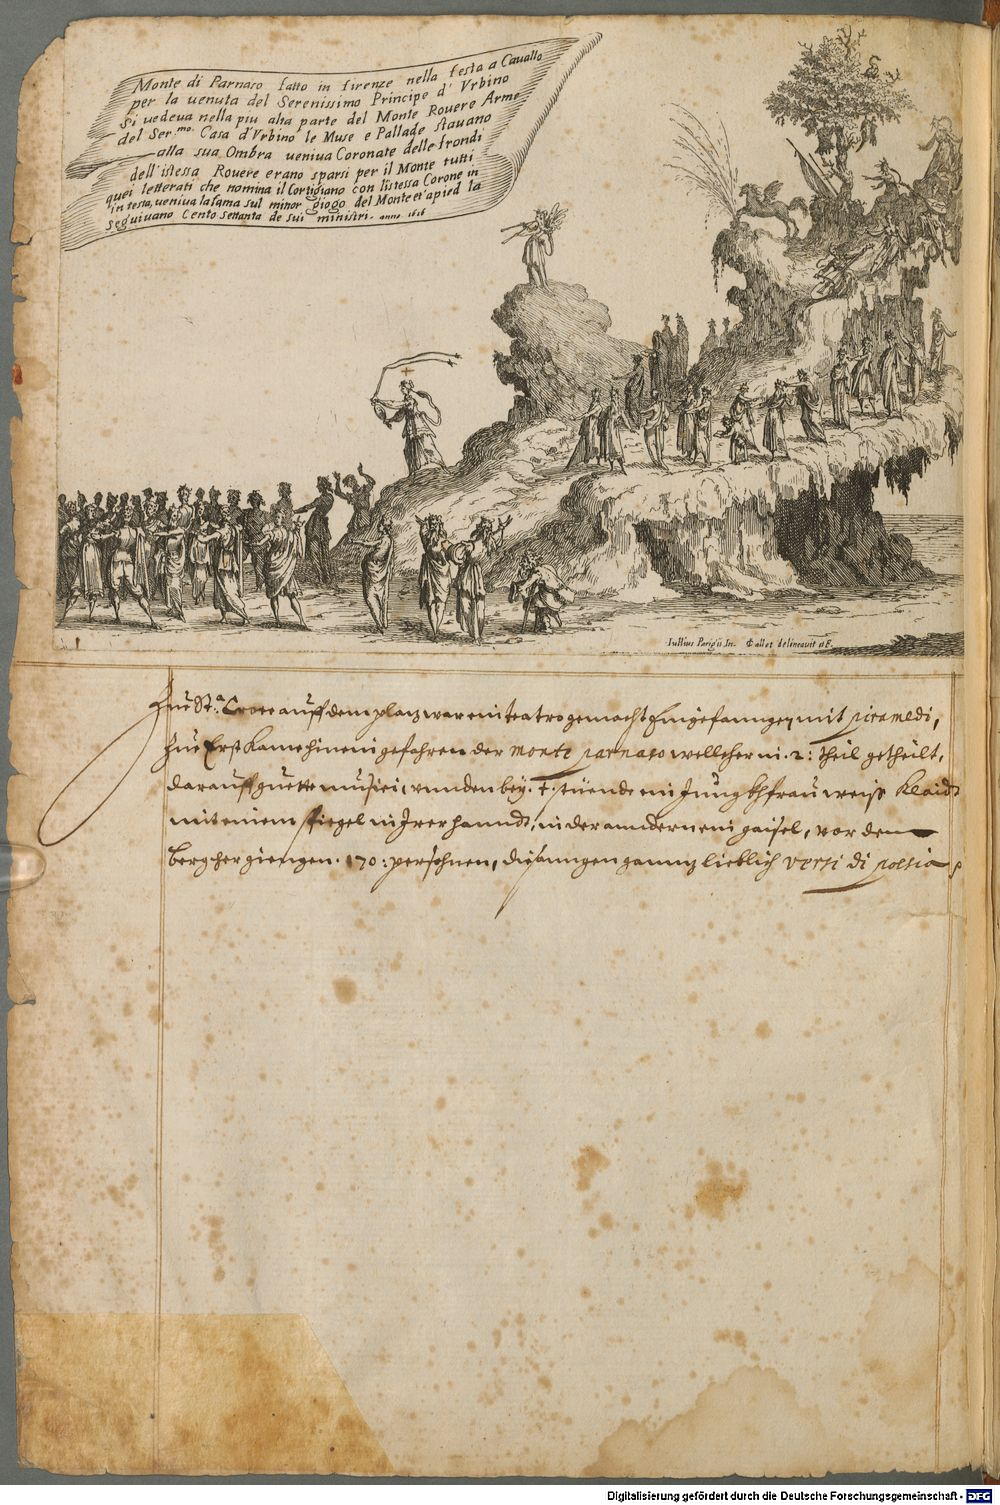 Monte di Parnaso fatto in firenze nella festa a Cauallo
per la uenuta del Serenissimo Principe d' Vrbino
Si uedeua nella piu alta parte del Monte Rouere Arme
del Ser.mo Casa d'Vrbino le Muse e Pallade stauano
alla sua Ombra ueniua Coronate delle frondi
dell'istessa Rouere erano sparsi per il Monte tutti
quei letterati che nomina il Cortigiano con l'istessa Corone in
in testa, ueniua la fama sul minor giogo del Monte et' apied la
seguiuano Cento settanta de sui ministri. anno 1616
Iullius Parigii In. Callot delineauit et F.
Zue Sta. Croce auff dem plaz war ein teatro gemacht Eingefanngen mit piramedi,
Zue Erst kame hinein gefahren der monte parnaso wellcher in .2: theil getheilt,
darauff guette musici, vnnden bey . stüende ein Jungkhfrau weiss Klaidt
mit einem spiegel in Jrer hanndt, in der anndern ein gaisel, vor dem
berg her giengen .170: persohnen, die sanngen gannz lieblich versi di poesia
Digitalisierung gefördert durch die Deutsche Forschungsgemeinschaft - DFG